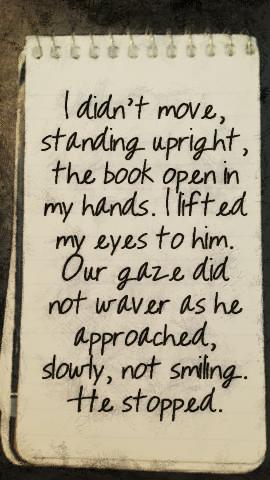 I didn't move,
standing upright,
the book open in
my hands. I lifted
my eyes to him.
Our gaze did
not waver as he
approached,
slowly, not smiling.
He stopped.